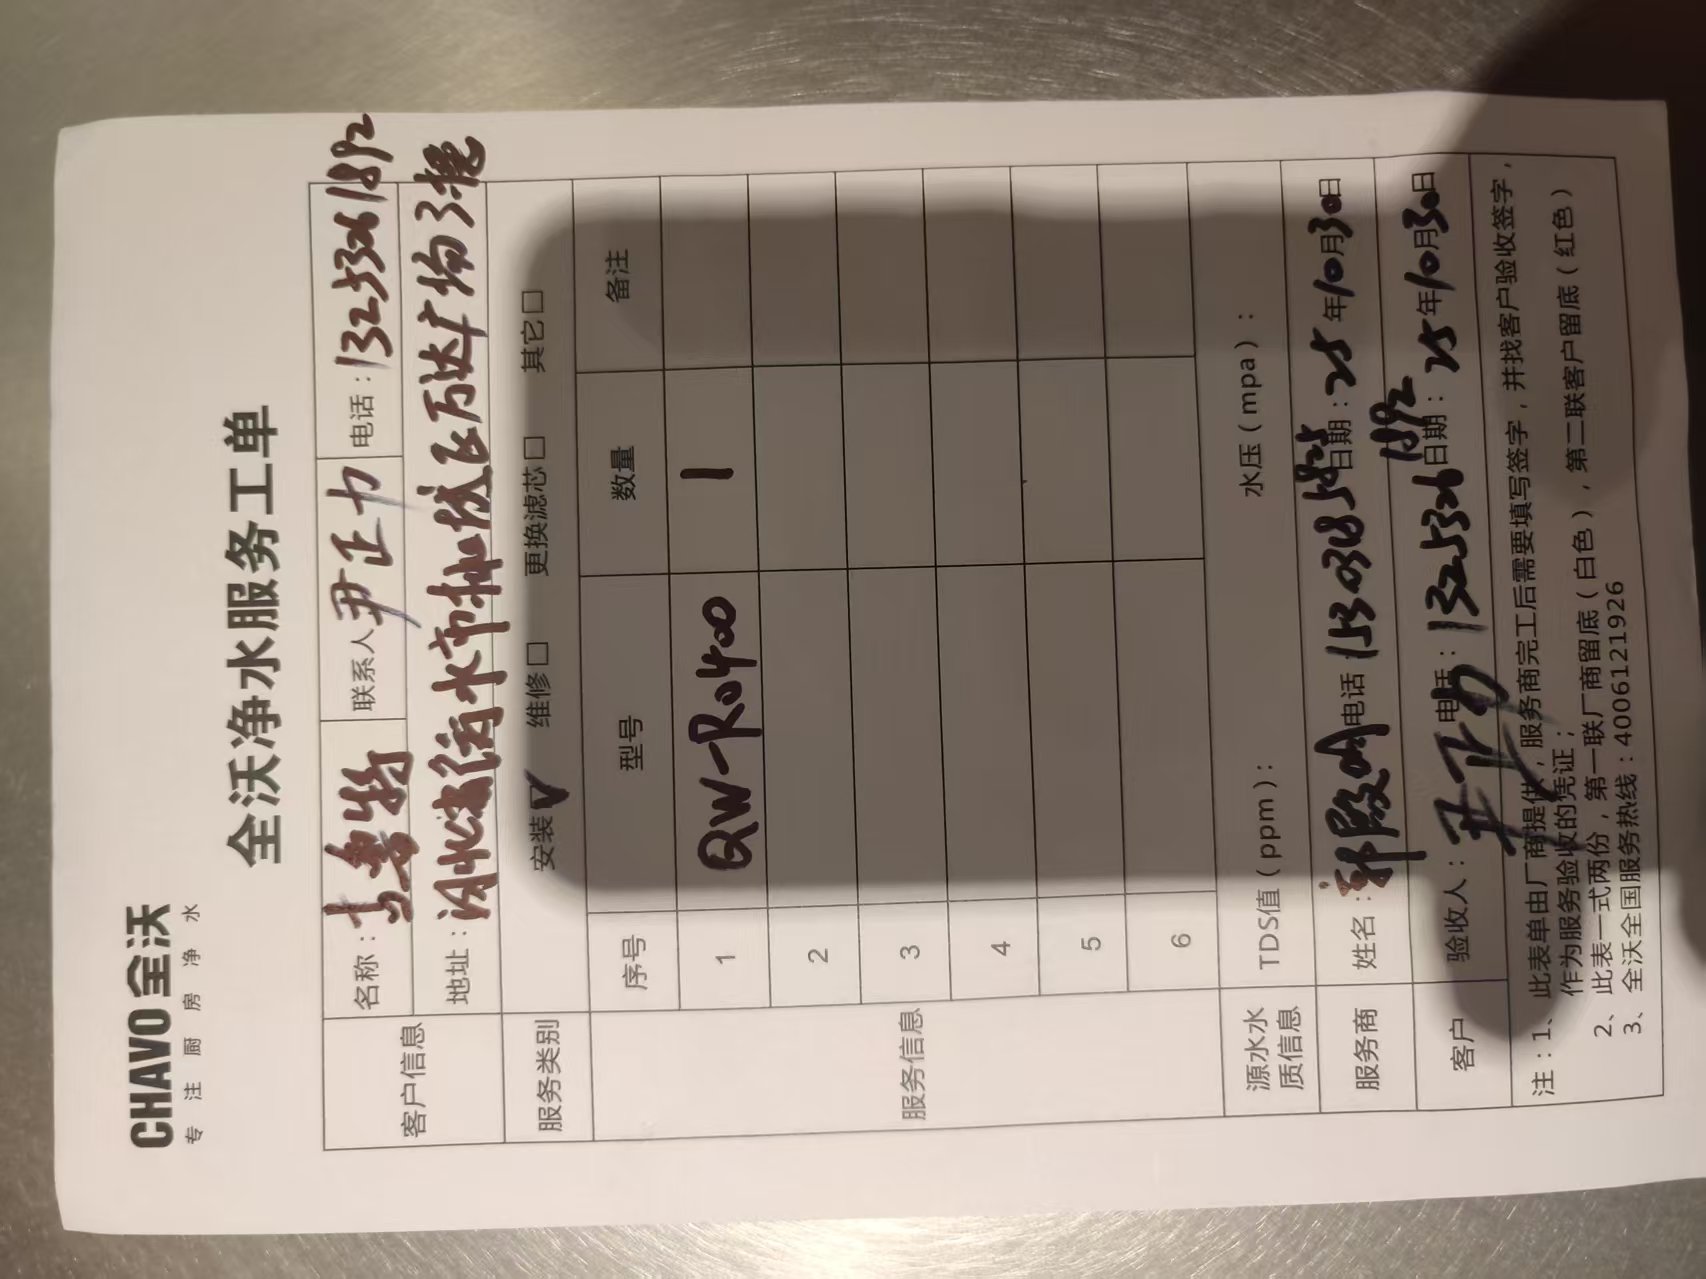 CHAVO 全沃
专 注 厨 房 净 水
全沃净水服务工单
客户信息
名称：
联系人 尹正力
电话：13253261892
地址：河北省衡水市桃城区万达广场3楼
服务类别
安装√ 维修□ 更换滤芯□ 其它□
服务信息
序号 型号 数量 备注
1 QW-RO400 1
2
3
4
5
6
源水水质信息
TDS值（ppm）： 水压（mpa）：
服务商 姓名： 电话 日期：25年10月30日
客户 验收人：尹正力 电话：13253261892 日期：25年10月30日
注：1、此表单由厂商提供，服务商完工后需要填写签字，并找客户验收签字，
作为服务验收的凭证；
2、此表一式两份，第一联厂商留底（白色），第二联客户留底（红色）
3、全沃全国服务热线：4006121926